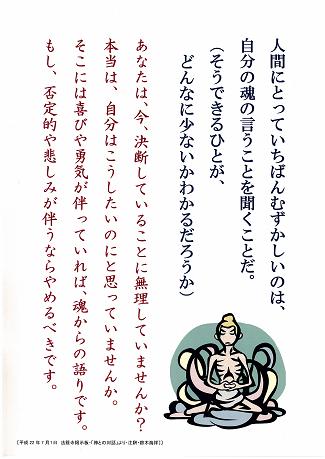 人間にとっていちばんむずかしいのは、
自分の魂の言うことを聞くことだ。
(そうできるひとが、
どんなに少ないかわかるだろうか)
あなたは、今、決断していることに無理していませんか?
本当は、自分はこうしたいのにと思っていませんか。
そこには喜びや勇気が伴っていれば、魂からの語りです。
もし、否定的や悲しみが伴うならやめるべきです。